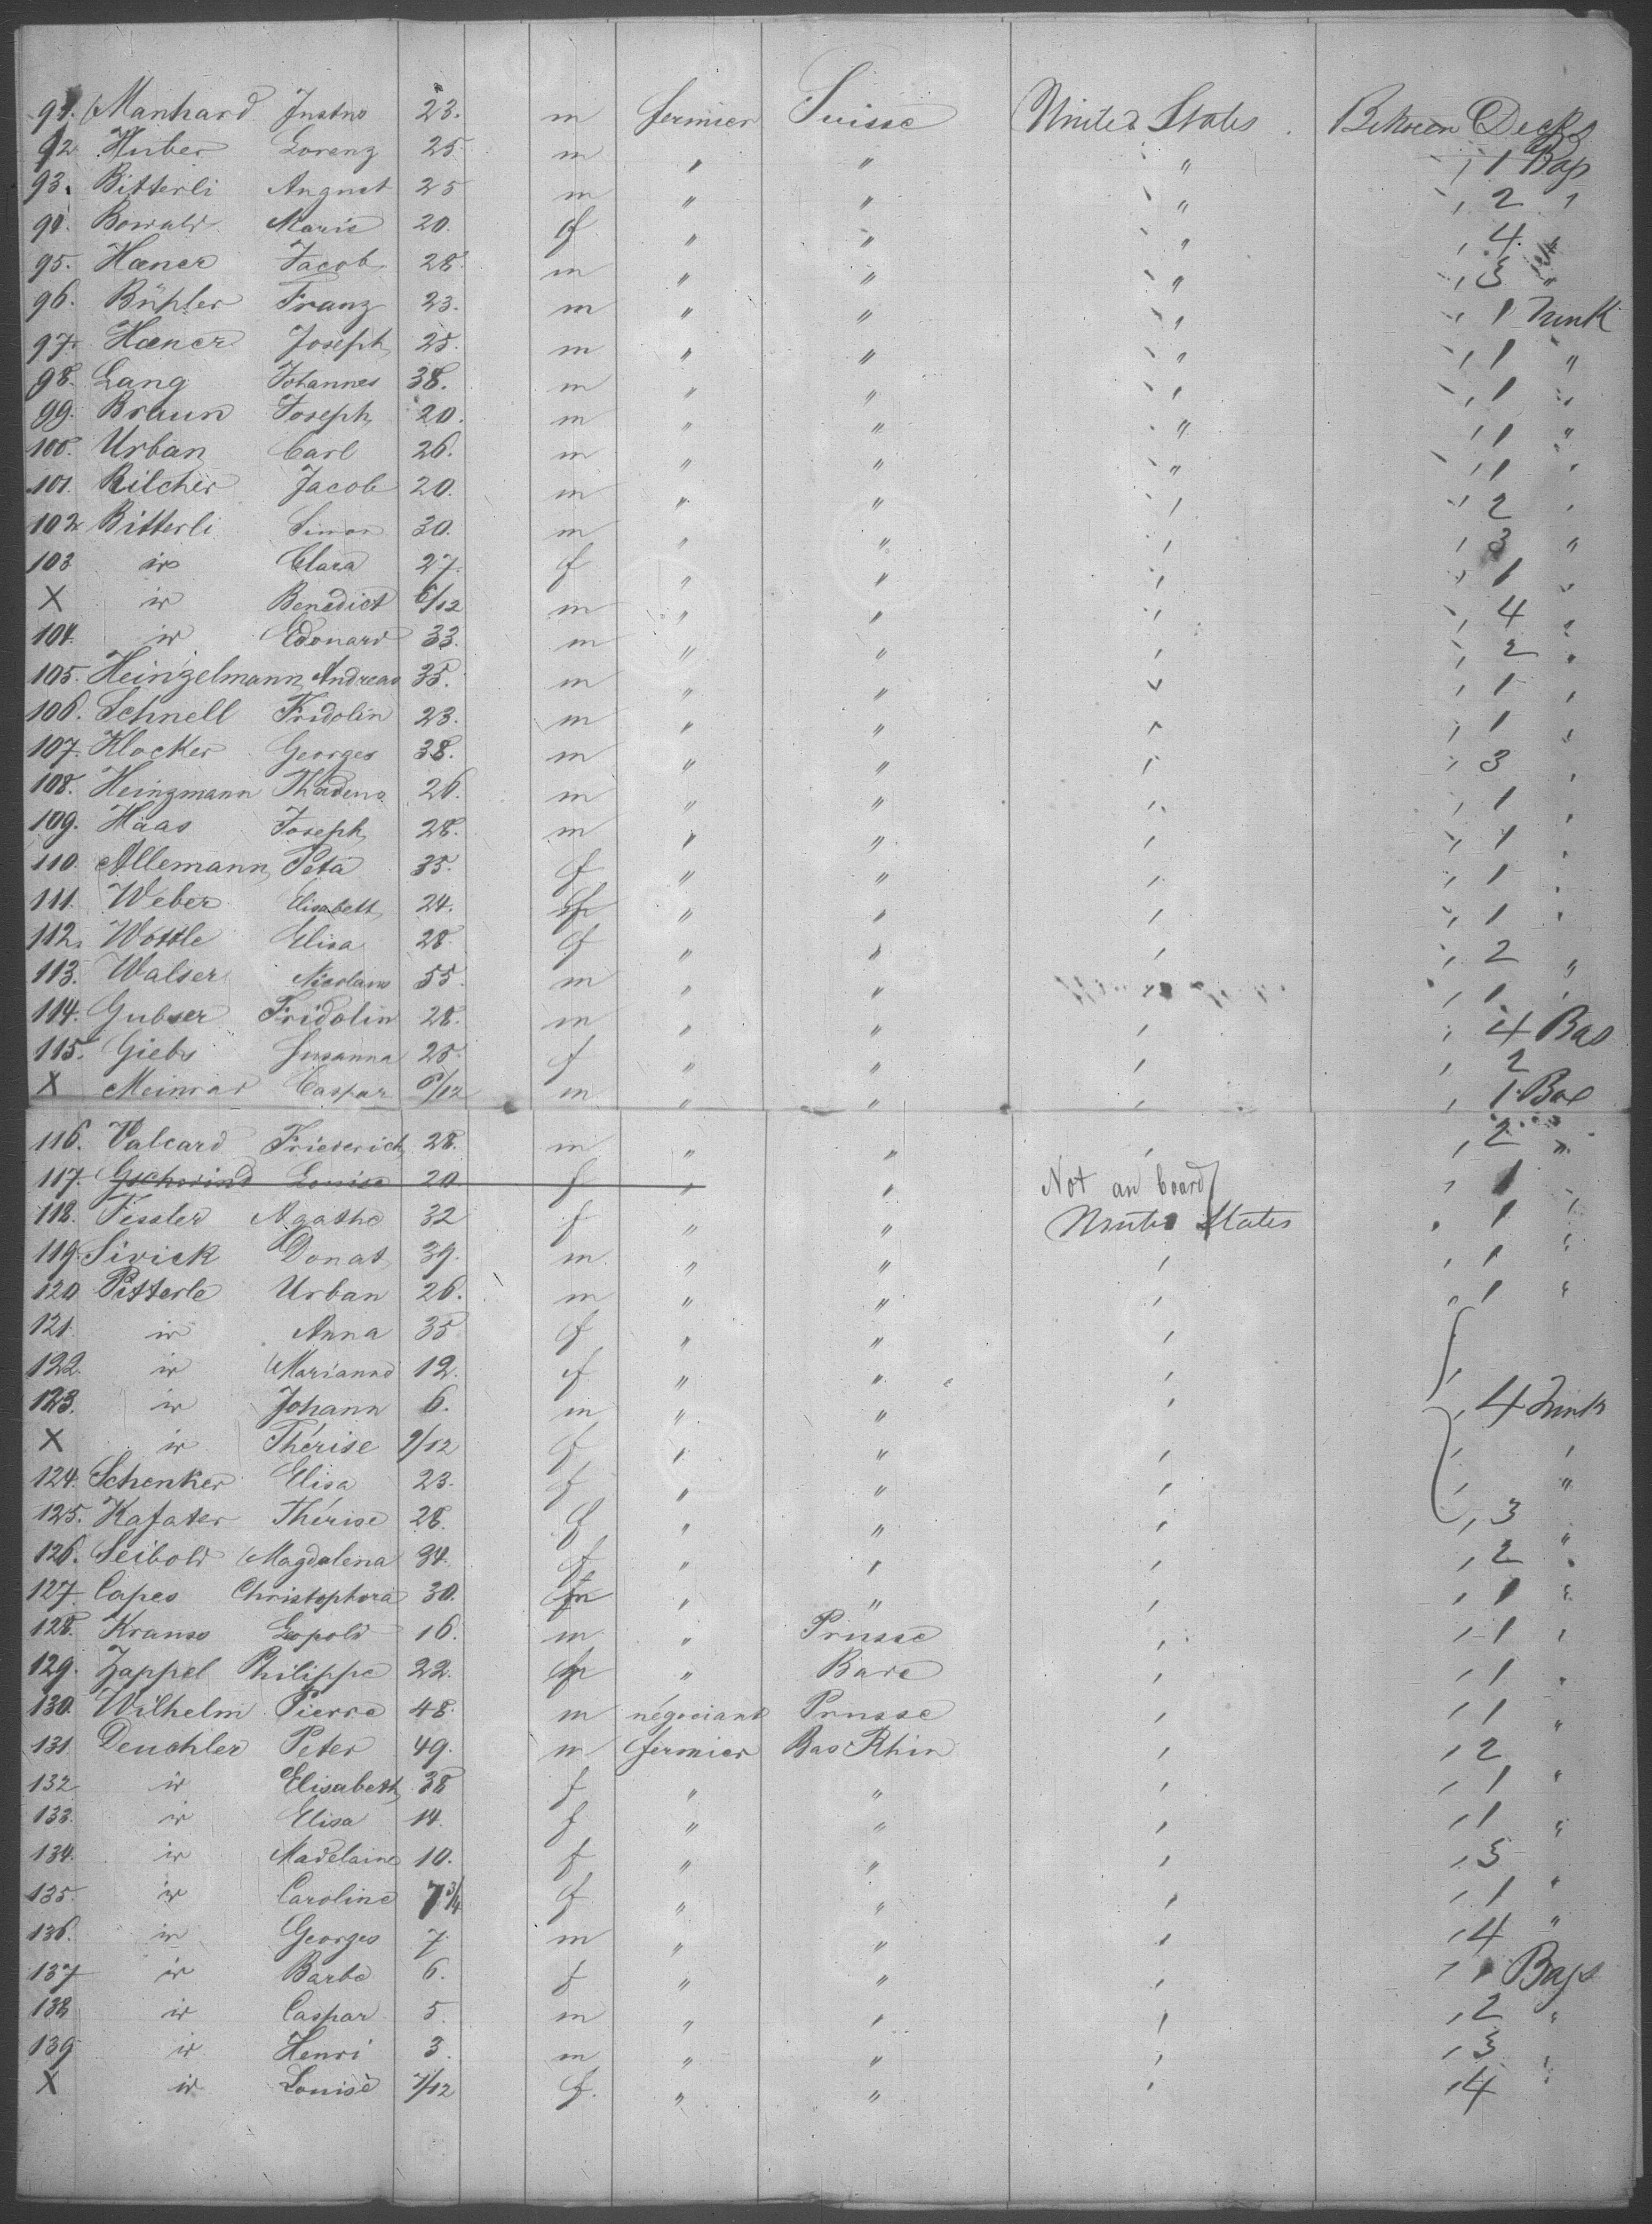 91. Manhard Justno 23. m fermier Suisse United States. Between Decks
92 Huber Lorenz 25 m " " " , 1 Bags
93. Bitterli August 25 m " " " , 2 "
94. Bowald Marie 20. f " " " , 4 "
95. Hæner Jacob 28. m " " " , 3 "
96. Bühler Franz 23. m " " " , 1 Trunk
97. Hæner Joseph 25. m " " " , 1 "
98. Lang Johannes 38. m " " " , 1 "
99. Braun Joseph 20. m " " " , 1 "
100. Urban Carl 26. m " " " , 1 "
101. Rilcher Jacob 20. m " " " , 2 "
102 Bitterli Simon 30. m " " " , 3 "
103 id Clara 27. f " " " , 1 "
X id Benedict 6/12 m " " " , 4 "
104. id Edouard 33. m " " " , 2 "
105. Heinzelmann Andreas 35. m " " " , 1 "
106. Schnell Fridolin 23. m " " " , 1 "
107. Klocker Georges 38. m " " " , 3 "
108. Heinzmann Thadeus 26. m " " " , 1 "
109. Haas Joseph 28. m " " " , 1 "
110. Allemann Peta 35. f " " " , 1 "
111. Weber Elisabeth 24. f " " " , 1 "
112. Wottle Elisa 28. f " " " , 2 "
113. Walser Nicolaus 55. m " " " , 1 "
114. Gubser Fridolin 28. m " " " , 4 Bas
115. Giebs Susanna 28. f " " " , 2
X Meinrad Caspar 6/12 m " " " , 1 Box
116. Valcard Friederich 28. m " " " , 2 "
117. Gschwind Louise 20 f " " Not an board , 1
118. Fessler Agathe 32 f " " United States , 1 "
119. Sirick Donat 39. m " " " , 1 "
120 Pitterle Urban 26. m " " " , 1 "
121. id Anna 35 f " " "
122. id Marianna 12. f " " " ,
123. id Johann 6. m " " " , 4 Trunk
X id Thérise 9/12 f " " " , "
124. Schenker Elisa 23. f " " " , "
125. Kafater Thérise 28. f " " " , 3
126. Seibold Magdalena 34. f " " " , 2 "
127. Capes Christophora 30. f " " " , 1 "
128. Kranss Leopold 16. m " Prusse " , 1 "
129. Zappel Philippe 22. m " Bade " , 1 "
130. Wilhelm Pierre 48. m négociant Prusse " , 1 "
131 Deuchler Peter 49. m fermier Bas Rhin " , 2
132 id Elisabeth 38 f " " " , 1 "
133. id Elisa 14. f " " " , 1 "
134. id Madelaine 10. f " " " , 3
135. id Caroline 7 3/4 f " " " , 1 "
136. id Georges 7. m " " " , 4 "
137 id Barbe 6. f " " " , 1 Bags
138 id Caspar 5. m " " " , 2 "
139 id Henri 3. m " " " , 3 "
X id Louise 7/12 f. " " " , 4 "